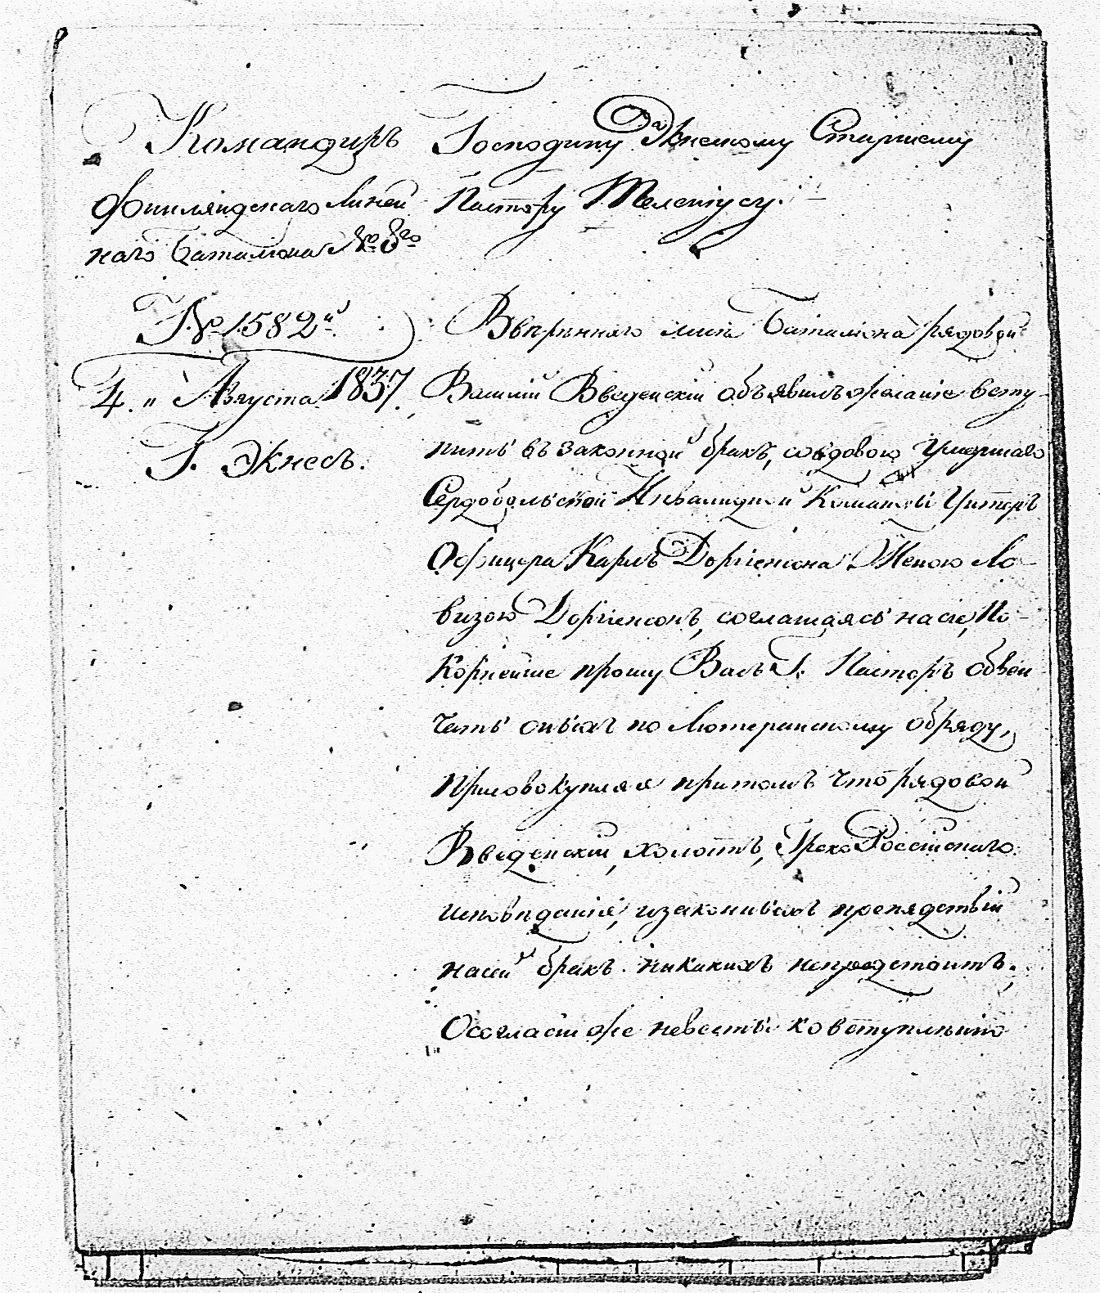 Командиръ
Финляндскаго Линей
наго Баталіона № 8го
№ 1582й
4 " Августа 1837.
Г. Экнесъ.
Господину Экнескому Старшему
Пастору
Ввѣреннаго мнѣ Баталіона рядовой
Василій Введенскій объявилъ желаніе всту-
пить въ законной бракъ, со вдовою умершаго
Сердобольской Инвалидной Команды Унтеръ
Офицера Карлъ Женою Ло-
визою соглашаясь на сіе, По-
корнейше прошу Васъ Г. Пасторъ обвен-
чать оныхъ по Лютеранскому обряду,
присовокупляя притомъ что рядовой
Введенскій, холостъ, Греко Россійскаго
исповѣданія, изаконныхъ препядствій
насей бракъ никакихъ непредстоитъ.
Осогласіи же невесты ко вступленію